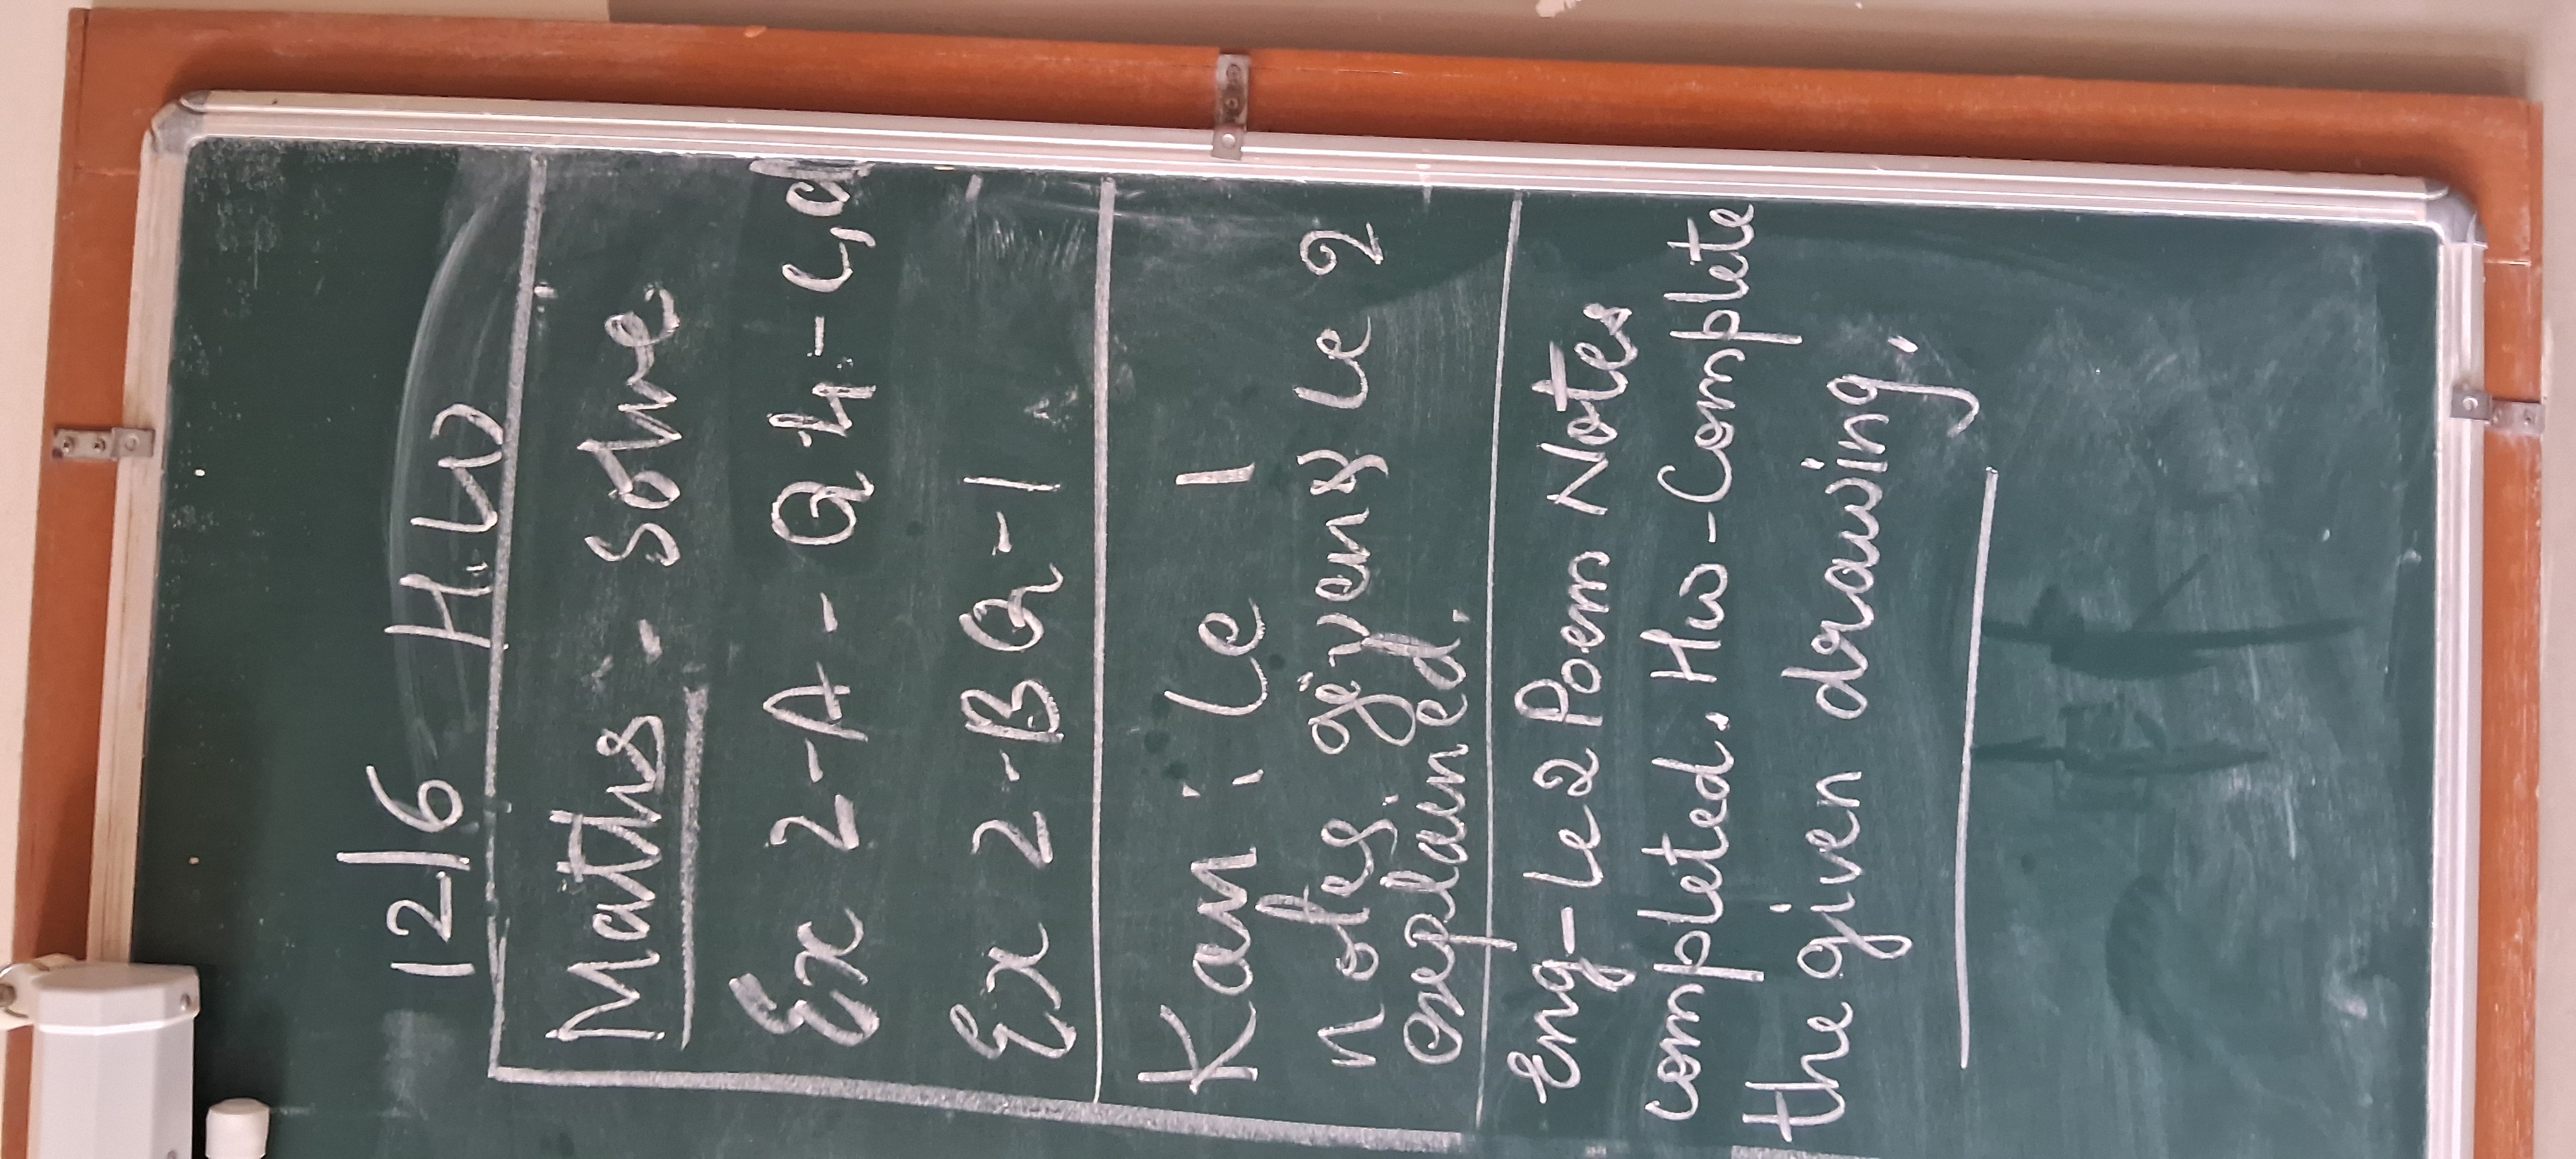 12/6 H.W
Maths - Solve
Ex 2-A - Q 4 - c, d
Ex 2-B Q-1
Kan : Le 1
notes given & Le 2
explained.
Eng - Le 2 Poem Notes
completed. Hw - Complete
the given drawing.